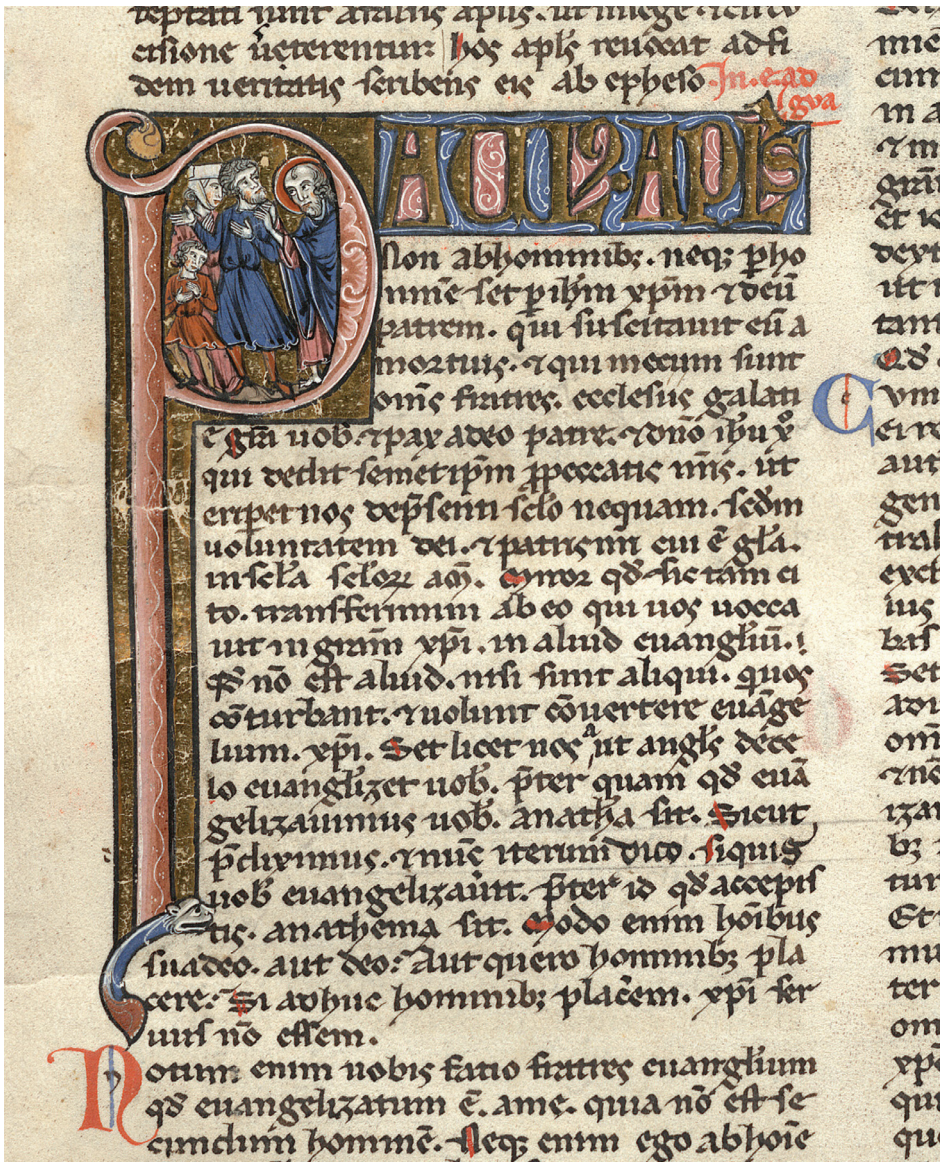 teptati sunt a falsis aplis. ut in lege ⁊ circū
cisione ūeterentur: hos apls̄ reuocat ad fi
dem ueritatis scribens eis ab epheso In. e. ad
gva
PAUL9 . APLS
Non ab hominibꝫ. neqꝫ p̱ ho
minē set p̱ ihm̄ xpm̄ ⁊ deū
patrem. qui suscitauit eū a
mortuis. ⁊ qui mecum sunt
om̄s fratres. ecclesiis galati
e gr̄a uob̄. ⁊ pax a deo patre. ⁊ dn̄o ihu x̄
qui dedit semetip̄m p̱ peccatis nr̄is. ut
eriperet nos de p̄senti sc̄lo nequam. sedm̄
uoluntatem dei. ⁊ patris nr̄i cui ē gl̄a.
in sc̄la sc̄loꝝ am̄. Miror qd̄ sic tam ci
to. transferimini ab eo qui uos uocca
uit in gram̄ xp̄i. in aliud euangliū̄.
Qd̄ nō est aliud. nisi sunt aliqui. quos
cōturbant. ⁊ uolunt cōuertere euāge
lium. xp̄i. Set licet nos aut angls̄ de ce
lo euanglizet uob̄. p̄ter quam qd̄ euā
gelizauimus uob̄. anatha sit. Sicut
p̄diximus. ⁊ nūc iterum dico. siquis
uob̄ euangelizauīt. p̄ter id qd̄ accepis
tis. anathema sit. Modo enim hōibus
suadeo. aut deo: Aut quero hominibꝫ pla
cere: Si adhuc hominibꝫ placēem. xp̄i ser
uus nō essem.
Notum enim uobis facio fratres euanglium
qd̄ euangelizatum ē. a me. quia nō est se
cundum hominē. Neqꝫ enim ego ab hoīe
mie
cum
in a
⁊ m
gram̄
et io
dext
ut
tant
Qd̄
Cum
ei re
aut
gen
trah
exct
ius
bas
Set
adu
om
⁊ nō
iza
bꝫ
tur
Et
mu
ter
om
xp̄
qui
que